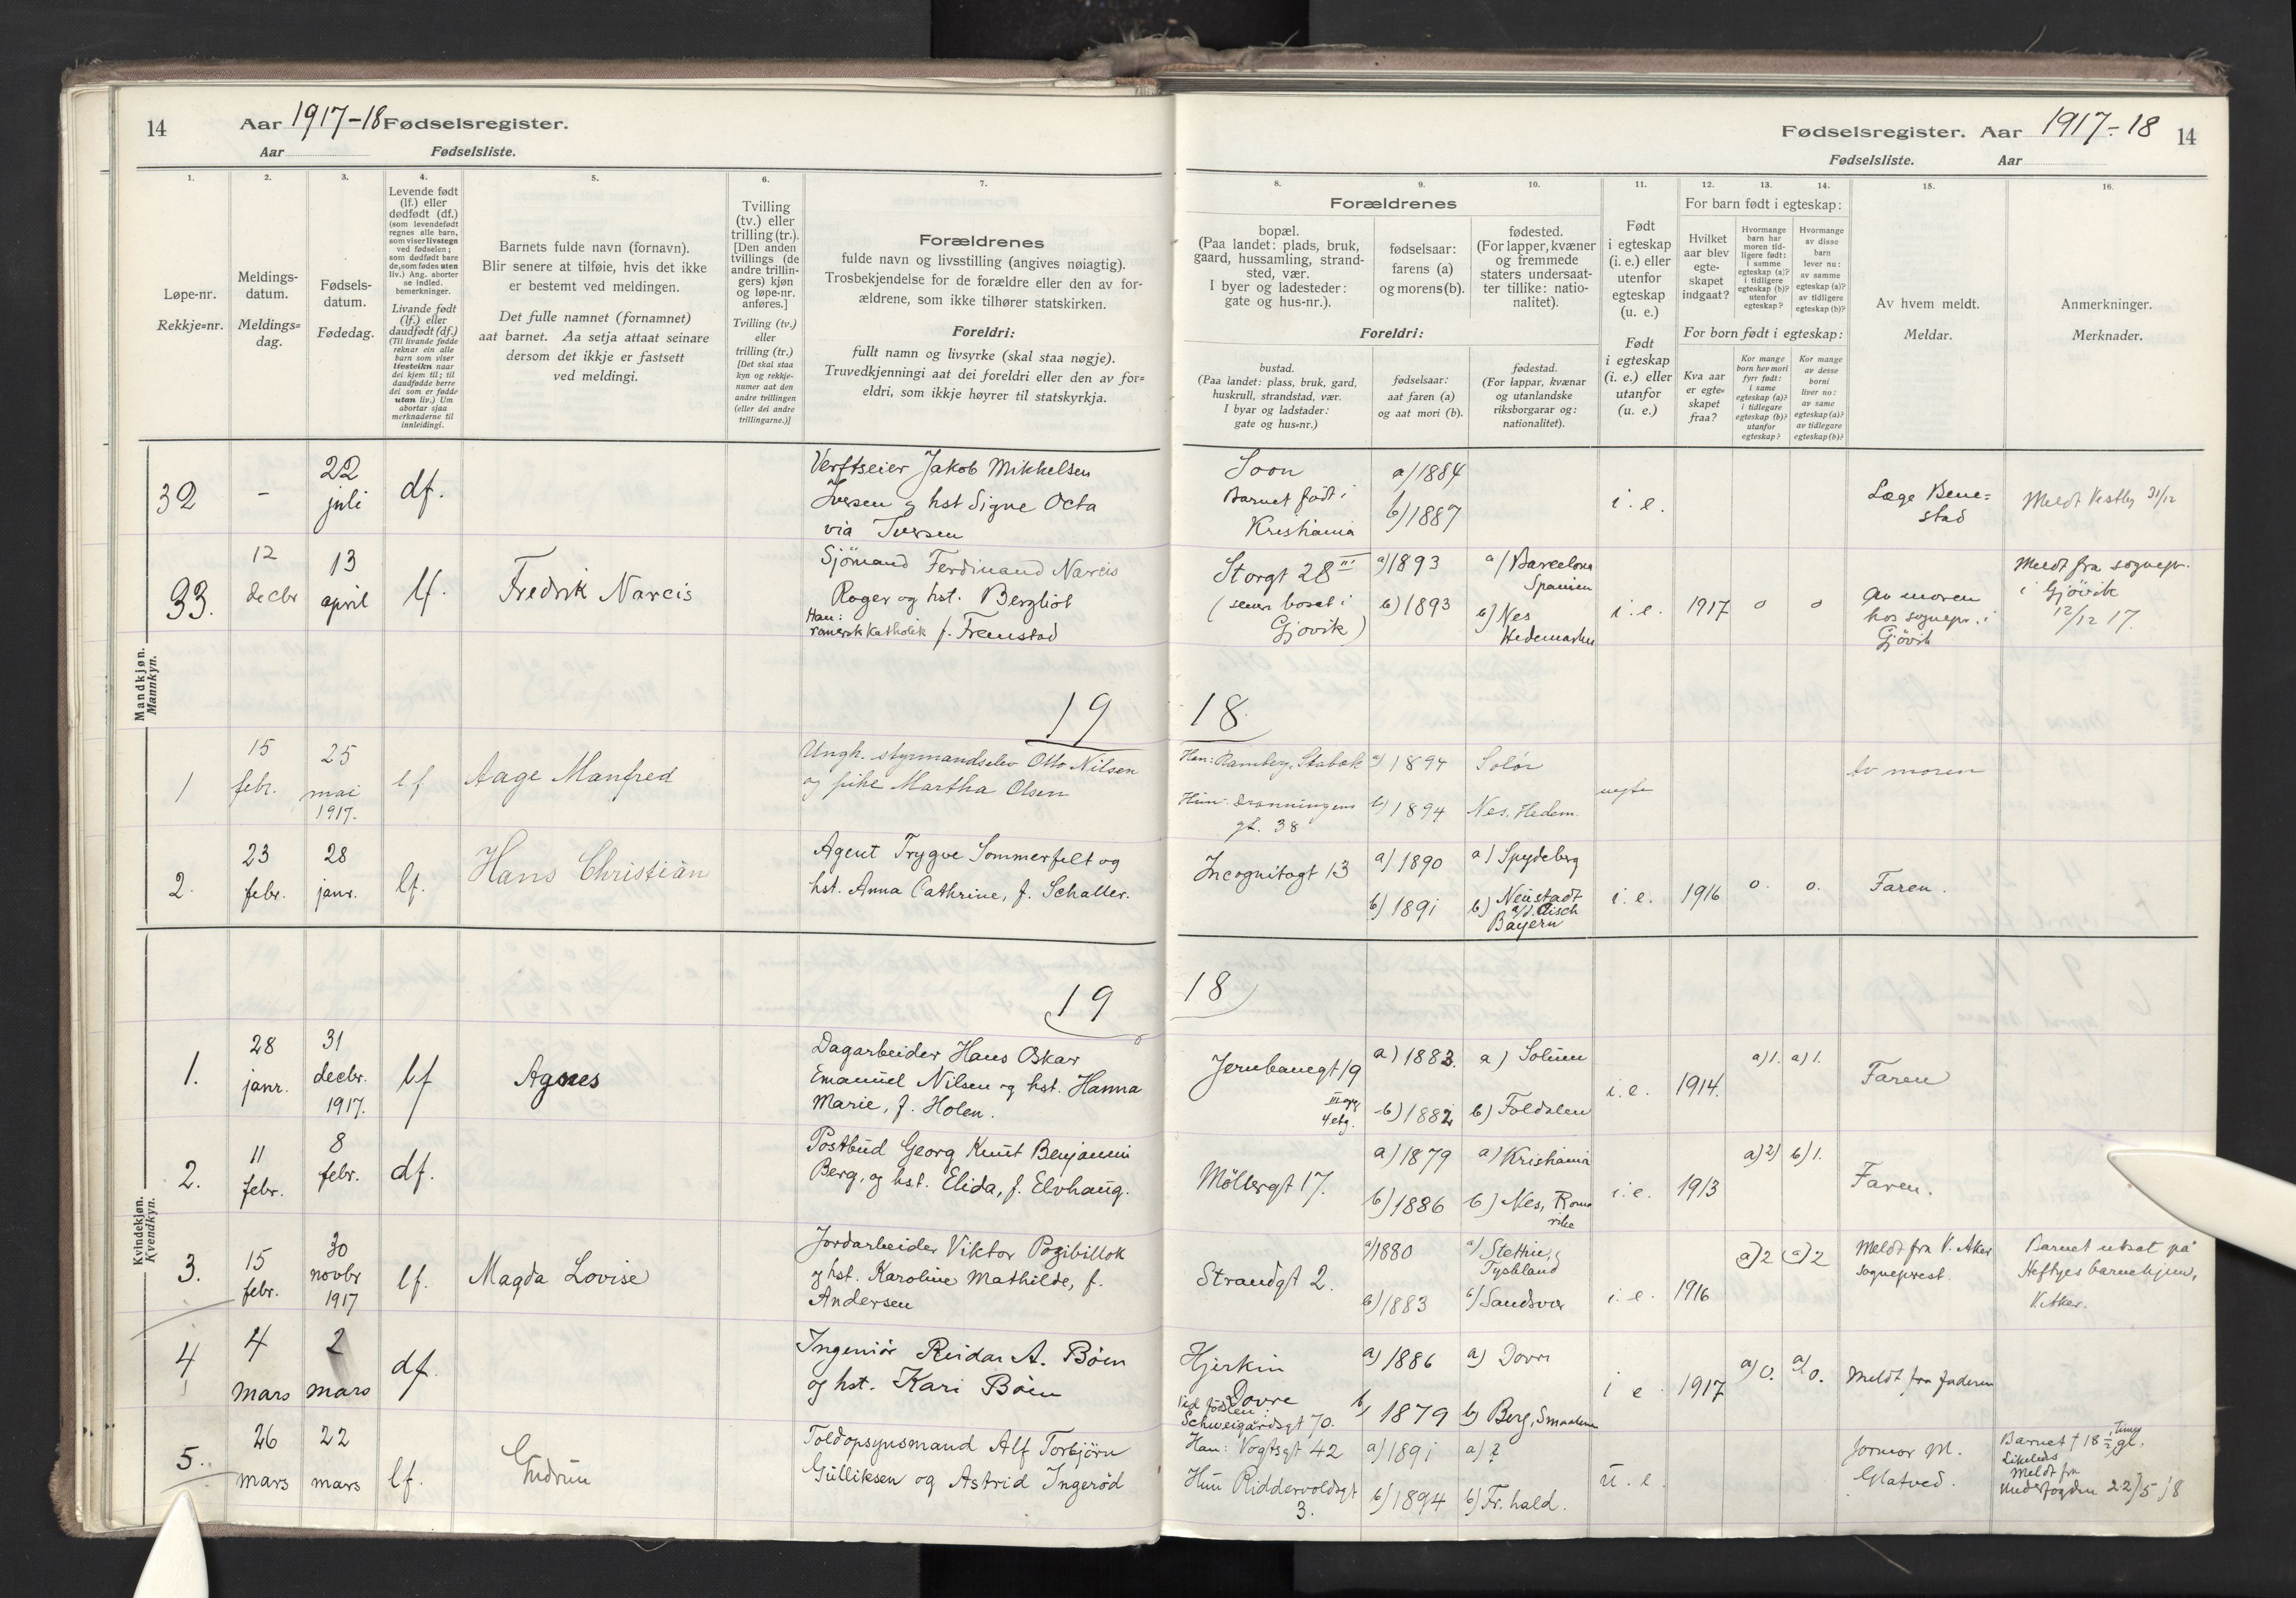 14
Aar 1917-18 Fødselsregister.
Aar Fødselsliste.
Fødselsregister. Aar 1917-18 14
Fødselsliste. Aar
1.
Løpe-nr.
Rekkje=nr.
2.
Meldings-
datum.
Meldings=
dag.
3.
Fødsels-
datum.
Fødedag.
4.
Levende født
(lf.) eller
dødfødt (df.)
(som levendefødt
regnes alle barn,
som viser livstegn
ved fødselen;
som dødfødt bare
de, som fødes uten
liv.) Ang. aborter
se indled.
bemerkninger.
Livande født
(lf.) eller
daudfødt (df.)
(Til livande fødde
reknar ein alle
barn som viser
livsteikn naar
dei kjem til; til
daudfødde berre
dei som er fødde
utan liv.) Um
abortar sjaa
merknaderne til
innleidingi.
5.
Barnets fulde navn (fornavn).
Blir senere at tilføie, hvis det ikke
er bestemt ved meldingen.
Det fulle namnet (fornamnet)
aat barnet. Aa setja attaat seinare
dersom det ikkje er fastsett
ved meldingi.
6.
Tvilling
(tv.) eller
trilling (tr.).
[Den anden
tvillings (de
andre trillin-
gers) kjøn
og løpe-nr.
anføres.]
Tvilling (tv.)
eller
trilling (tr.)
[Det skal staa
kyn og rekkje-
numer aat den
andre tvillingen
(eller dei andre
trillingarne.)]
7.
Forældrenes
fulde navn og livsstilling (angives nøiagtig).
Trosbekjendelse for de forældre eller den av for-
ældrene, som ikke tilhører statskirken.
Foreldri:
fullt namn og livsyrke (skal staa nøgje).
Truvedkjenningi aat dei foreldri eller den av for=
eldri, som ikkje høyrer til statskyrkja.
8.
Forældrenes
bopæl.
(Paa landet: plads, bruk,
gaard, hussamling, strand-
sted, vær.
I byer og ladesteder:
gate og hus-nr.).
Foreldri:
bustad.
(Paa landet: plass, bruk, gard,
huskrull, strandstad, vær.
I byar og ladstader:
gate og hus=nr.)
9.
fødselsaar:
farens (a)
og morens (b).
fødselsaar:
aat faren (a)
og aat mori (b).
10.
fødested.
(For lapper, kvæner
og fremmede
staters undersaat-
ter tillike: natio-
nalitet).
fødestad.
(For lappar, kvænar
og utanlandske
riksborgarar og:
nationalitet).
11.
Født
i egteskap
(i. e.) eller
utenfor
egteskap
(u. e.)
Født
i egteskap
(i. e.) eller
utanfor
(u. e.)
For barn født i egteskap:
12.
Hvilket
aar blev
egte-
skapet
indgaat?
For born født i egteskap:
Kva aar
er egte=
skapet
fraa?
13.
Hvormange
barn har
moren tid-
ligere født:
i samme
egteskap (a)?
i tidligere
egteskap (b)?
utenfor
egteskap?
Kor mange
born hev mori
fyrr født:
i same
egteskap (a)?
i tidlegare
egteskap (b)?
utanfor
egteskap?
14.
Hvormange
av disse
barn
lever nu:
av samme
egteskap (a)?
av tidligere
egteskap (b)?
Kor mange
av desse
borni
liver no:
av same
egteskap (a)?
av tidlegare
egteskap (b)?
15.
Av hvem meldt.
Meldar.
16.
Anmerkninger.
Merknader.
Mandkjøn.
Mannkyn.
32 - 22 juli df.
Verftseier Jakob Mikkelsen
Iversen og hst Signe Octa
via Iversen
Soon
Barnet født i
Kristiania
a) 1884
b) 1887
i. e.
Læge Bene=
stad
Meldt Vestby 31/12
33. 12 decbr 13 april lf. Fredrik Narcis
Sjömand Ferdinand Narcis
Roger og hst. Bergliot
Han:
romersk katholik f. Fremstad
Storgt 28 III
(senr boset i
Gjøvik)
a) 1893
b) 1893
a) Barcelona
Spanien
b) Nes
Hedemarken
i. e. 1917 0 0
Av moren
hos sognepr. i
Gjövik
Meldt fra sognepr.
i Gjövik
12/12 17.
19 18
1 15 febr. 25 mai 1917. lf Aage Manfred
Ungk. styrmandselev Otto Nilsen
og pike Martha Olsen
Han: Ramberg, Stabæk
Hun: Dronningens
gt. 38
a) 1894
b) 1894
Solör
Nes. Hedem.
uegte
Av moren
2. 23 febr. 28 janr. lf. Hans Christian
Agent Trygve Sommerfelt og
hst. Anna Cathrine, f. Schaller.
Incognitogt 13
a) 1890
b) 1891
a) Spydeberg
b) Neustadt
a/d. Aisch
Bayern
i. e. 1916 0. 0.
Faren.
Kvindekjøn.
Kvendkyn.
19 18
1. 28 janr. 31 decbr. 1917. lf Agnes
Dagarbeider Hans Oskar
Emanuel Nilsen og hst. Hanna
Marie, f. Holen.
Jernbanegt 19
III opg
4 etg.
a) 1883.
b) 1882
a) Solum
b) Foldalen
i. e. 1914. a) 1. a) 1.
Faren
2. 11 febr. 8 febr. df.
Postbud Georg Knut Benjamin
Berg, og hst. Elida, f. Elvhaug.
Möllergt 17.
a) 1879
b) 1886
a) Kristiania
b) Nes, Rome
rike
i. e. 1913 a) 2) b) 1.
Faren.
3. 15 febr. 30 novbr 1917 lf. Magda Lovise
Jordarbeider Viktor Pozibillok
og hst. Karoline Mathilde, f.
Andersen
Strandgt 2.
a) 1880
b) 1883
a) Stettin,
Tyskland
b) Sandsvær
i. e. 1916 a) 2 a) 2
Meldt fra V. Aker
sogneprest.
Barnet utsat på
Heftyes barnehjem,
V. Aker.
4 4 mars 2 mars df.
Ingeniör Reidar A. Böen
og hst. Kari Böen
Hjerkin
Dovre
Ved födslen:
Schweigårdsgt 70.
a) 1886
b) 1879
a) Dovre
b) Berg, Smaalene
i e. 1917 a) 0. a) 0.
Meldt fra faderen
5. 26 mars 22 mars lf. Gudrun
Toldopsynsmand Alf Torbjörn
Gulliksen og Astrid Ingeröd
Han: Vogtsgt 42
Hun Riddervoldsgt
3.
a) 1891
b) 1894
a) ?
b) Fr. hald.
u. e.
Jormor M.
Glatved.
Barnet † 18 ½ time gl.
Likeledes
Meldt fra
Underfogden 22/5 18